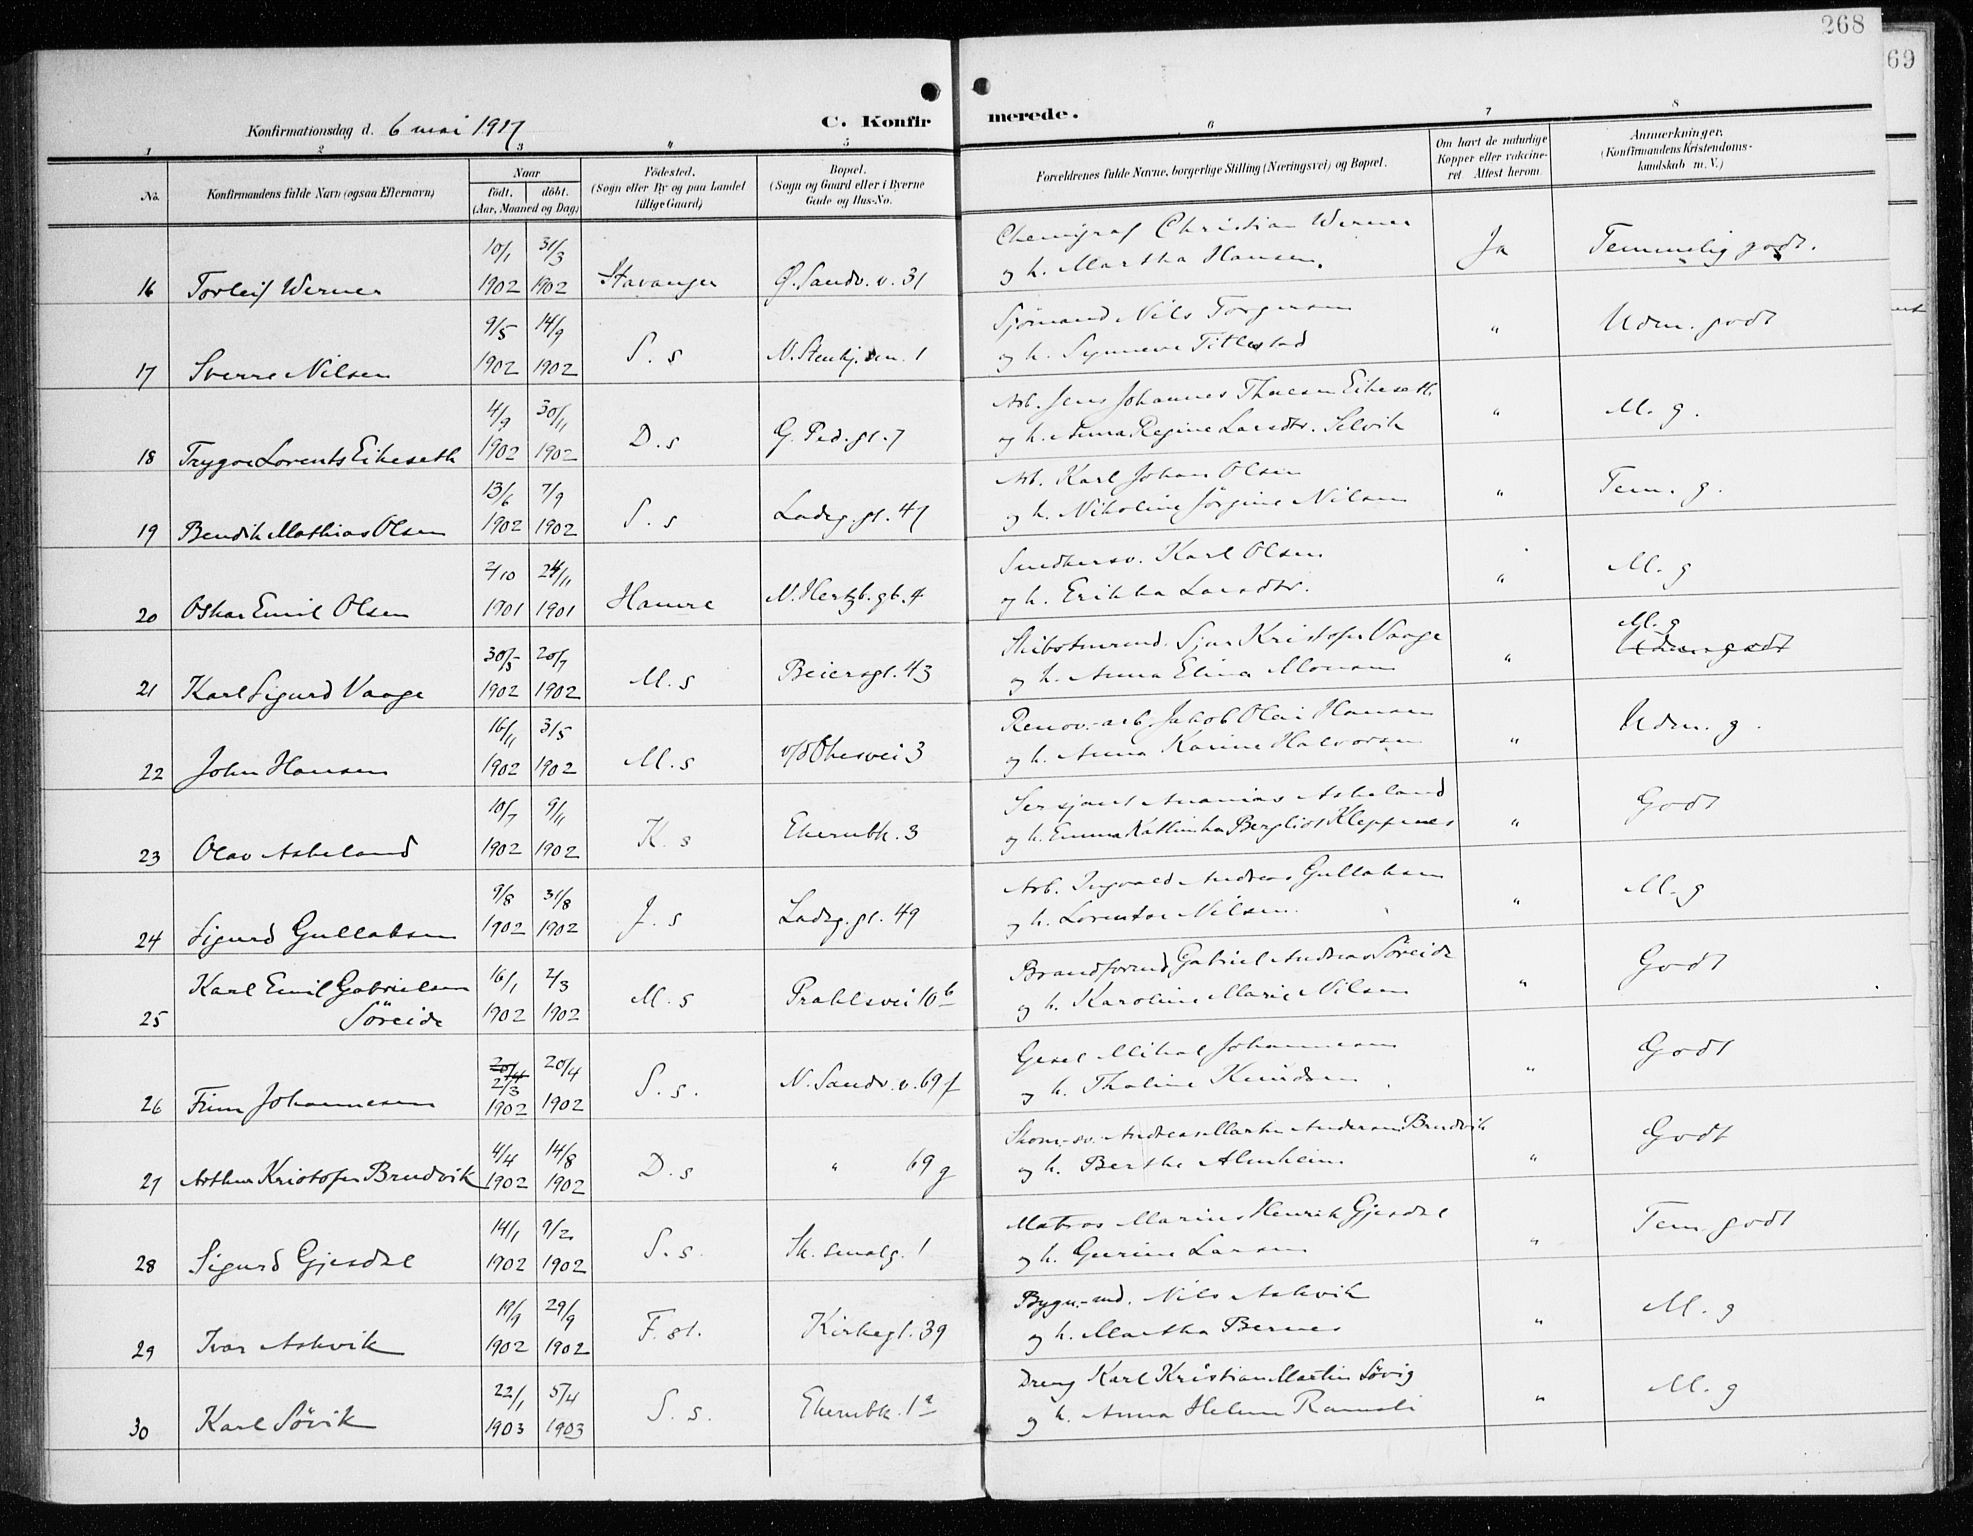 268
69
Konfirmationsdag d. 6 mai 1917
C. Konfirmerede.
1 2 3 4 5 6 7 8
No.
Konfirmandens fulde Navn (ogsaa Efternavn)
Naar
født. døbt.
(Aar, Maaned og Dag)
Fødested.
(Sogn eller By og paa Landet
tillige Gaard)
Bopæl.
(Sogn og Gaard eller i Byerne
Gade og Hus-No.
Forældrenes fulde Navne, borgerlige Stilling (Næringsvei) og Bopæl.
Om havt de naturlige
Kopper eller vaksine-
ret Attest herom.
Anmerkninger.
(Konfirmandens Kristendoms-
kundskab m. V.)
16 Torleif Werner 10/1 1902 31/3 1902 Stavanger Ø. Sandv. v. 31
Chemigraf Christian Werner
og h. Martha Hansen. Ja Temmelig godt.
17 Sverre Nilsen 9/5 1902 14/9 1902 S. s N. Stenkj.sm. 1
Sjømand Nils Torgersen
og h. Synneve Titlestad " Udm. godt
18 Trygve Lorents Eikeseth 4/9 1902 30/11 1902 D. s G. Ped. gt. 7
Arb. Jens Johannes Eikeseth
og h. Anna Regine Larsdtr. Selvik " M. g.
19 Bendik Mathias Olsen 13/6 1902 7/9 1902 S. s Ladeg. gt. 47
Arb. Karl Johan Olsen
og h. Nikoline Jørgine Nilsen " Tem. g.
20 Oskar Emil Olsen 2/10 1901 24/11 1901 Hamre N. Hertzb. gt. 4
Snedkersv. Karl Olsen
og h. Erikka Larsdtr. " M. g
21 Karl Sigurd Vaage 30/5 1902 20/7 1902 M. s Beiersgt. 43
Sjur Kristofer Vaage
og h. Anna Elina Monsen " M. g
22 John Hansen 16/11 1902 31/5 1902 M. s v/d Ohesvei 3
Renov.-arb. Jakob Olai Hansen
og h. Anna Karine Halvorsen " Udm. g.
23 Olav Askeland 10/7 1902 9/11 1902 K. s Ekernbk. 3
Sersjant Ananias Askeland
og h. Emma Kathinka Bergliot Kleppenes " Godt
24 Sigurd Gullaksen 9/8 1902 31/8 1902 J. s Ladeg. gt. 49
Arb. Ingvald Andreas Gullaksen
og h. Lorentse Nilsen. " M. g
25 Karl Emil Gabrielsen
Søreide 16/1 1902 2/3 1902 M. s Prahlsvei 10 b
Brandformd Gabriel Andreas Søreide
og h. Karoline Marie Nilsen " Godt
26 Finn Johannesen 20/4 2/3 1902 20/4 1902 S. s. N. Sandv. v. 69 f
Gesel Mikal Johannesen
og h. Thaline Knudsen " Godt
27 Arthur Kristofer Brudvik 4/4 1902 14/8 1902 D. s " 69 g
Skom.-sv. Andreas Martin Andersen Brudvik
og h. Berthe Almheim " Godt
28 Sigurd Gjesdal 14/1 1902 9/2 1902 S. s. Sk. smalg. 1
Matros Marius Henrik Gjesdal
og h. Gurine Larsen " Tem. godt
29 Ivar Askvik 19/9 1902 29/9 1902 F. st. Kirkegt. 39
Bygn.-md. Nils Askvik
og h. Martha Bernes " M. g
30 Karl Søvik 22/1 1903 5/4 1903 S. s. Ekernbk. 1 a
Dreng Karl Kristian Martin Søvig
og h. Anna Helene Ramsli " M. g